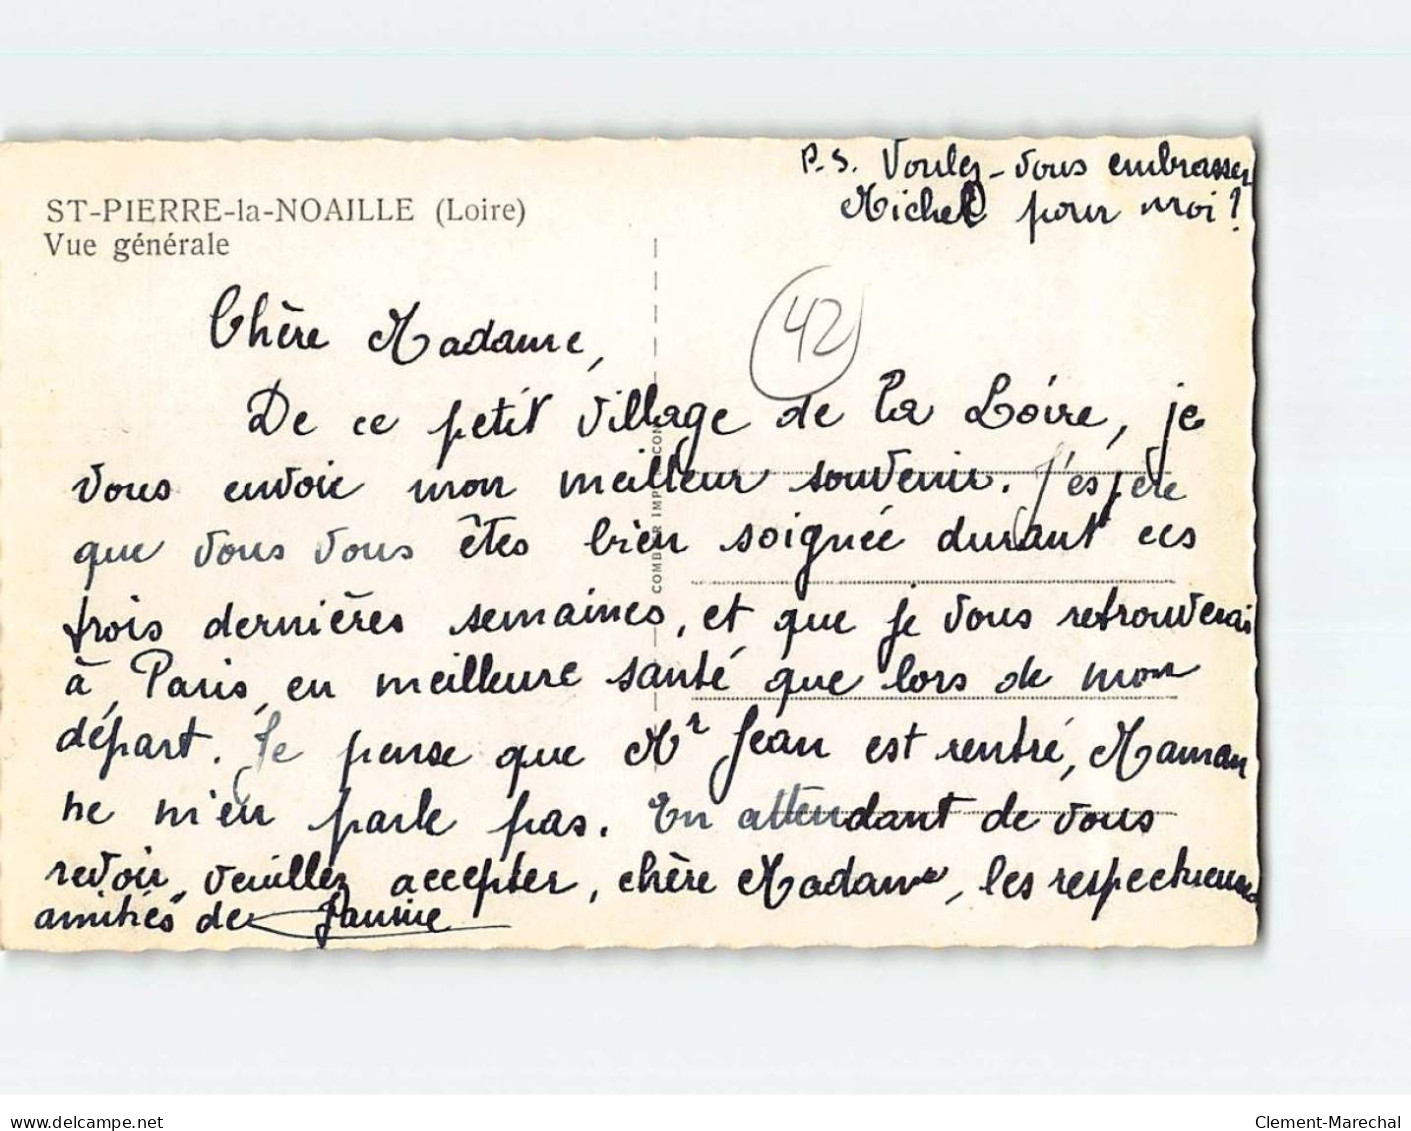 P.S. Voulez-vous embrasser
Michel pour moi !
ST-PIERRE-la-NOAILLE (Loire)
Vue générale
42
Chère Madame,
De ce petit village de la Loire, je
vous envoie mon meilleur souvenir. J'espère
que vous vous êtes bien soignée durant ces
trois dernières semaines, et que je vous retrouverai
à Paris, en meilleure santé que lors de mon
départ. Je pense que Mr Jean est rentré, Maman
ne m'en parle pas. En attendant de vous
revoir, veuillez accepter, chère Madame, les respectueuses
amitiés de
COMBIER IMP
delcampe.net
Clement-Marechal